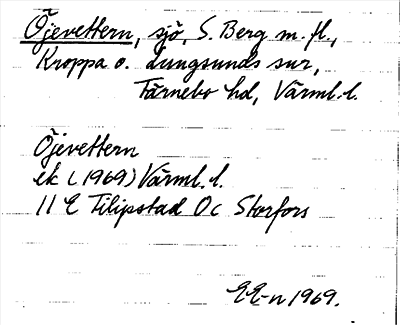 Öjevettern, sjö, S. Berg m. fl.,
Kroppa o. Lungsunds snr,
Färnebo hd, Värml. l.
Öjevettern
ek (1969) Värml. l.
11 E Filipstad 0c Storfors
EE-n 1969.